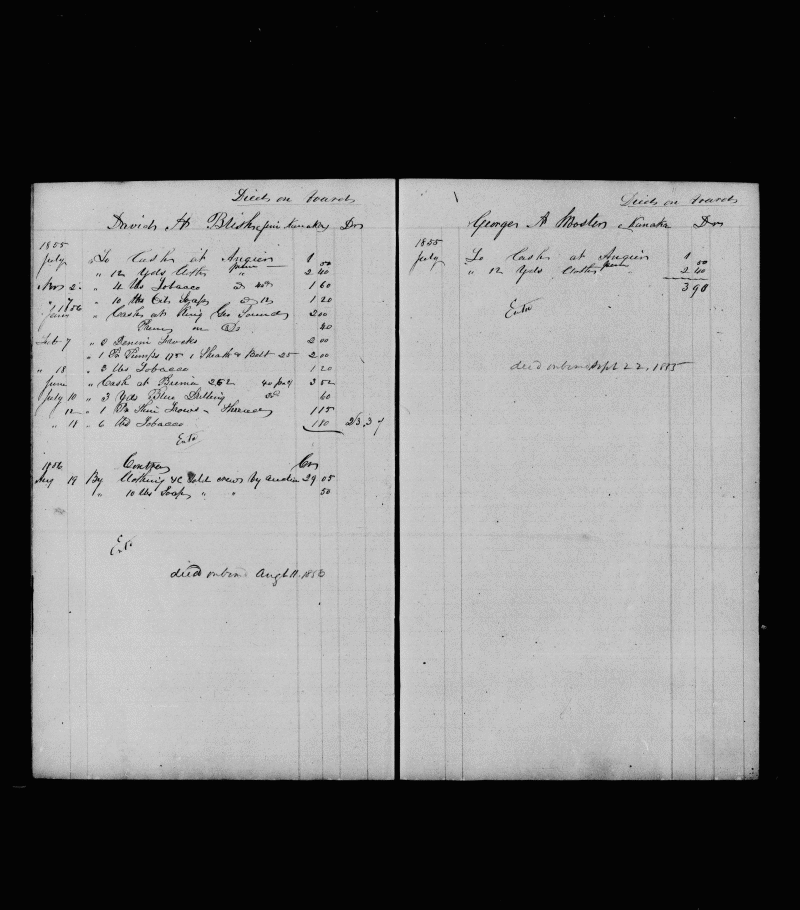 Died on board
David H Blish Kanaka Drs
1855
July " To Cash at Angier 1 50
" 12 Yds Cloth " 2 40
Nov 2 " 4 lbs Tobacco 40 1 60
" 7 " 10 lbs Soap 12 1 20
1856
Jany " Cash at King Geo Sound 2 00
on Do 40
Feb 7 " 3 Denim Frocks 2 00
" 1 Pr Pumps 175 1 Sheath & Belt 25 2 00
" 18 " 3 lbs Tobacco 1 20
June " Cash at 252 3 52
July 10 " 3 Yds Blue Drilling 60
" 12 " 1 Pr Thin Trows Thread 1 15
" 18 " 6 lbs Tobacco 1 80
Entd
1856 Contra Crs
Aug 19 By Clothing &c Sold crew by auction 29 05
" 10 lbs Soap " " 50
Entd
died on board Augt 11.
Died on board
George A Kanaka Drs
1855
July To Cash at Angier 1 50
" 12 Yds Cloth 2 40
3 90
Entd
died on board Sept 22, 1855